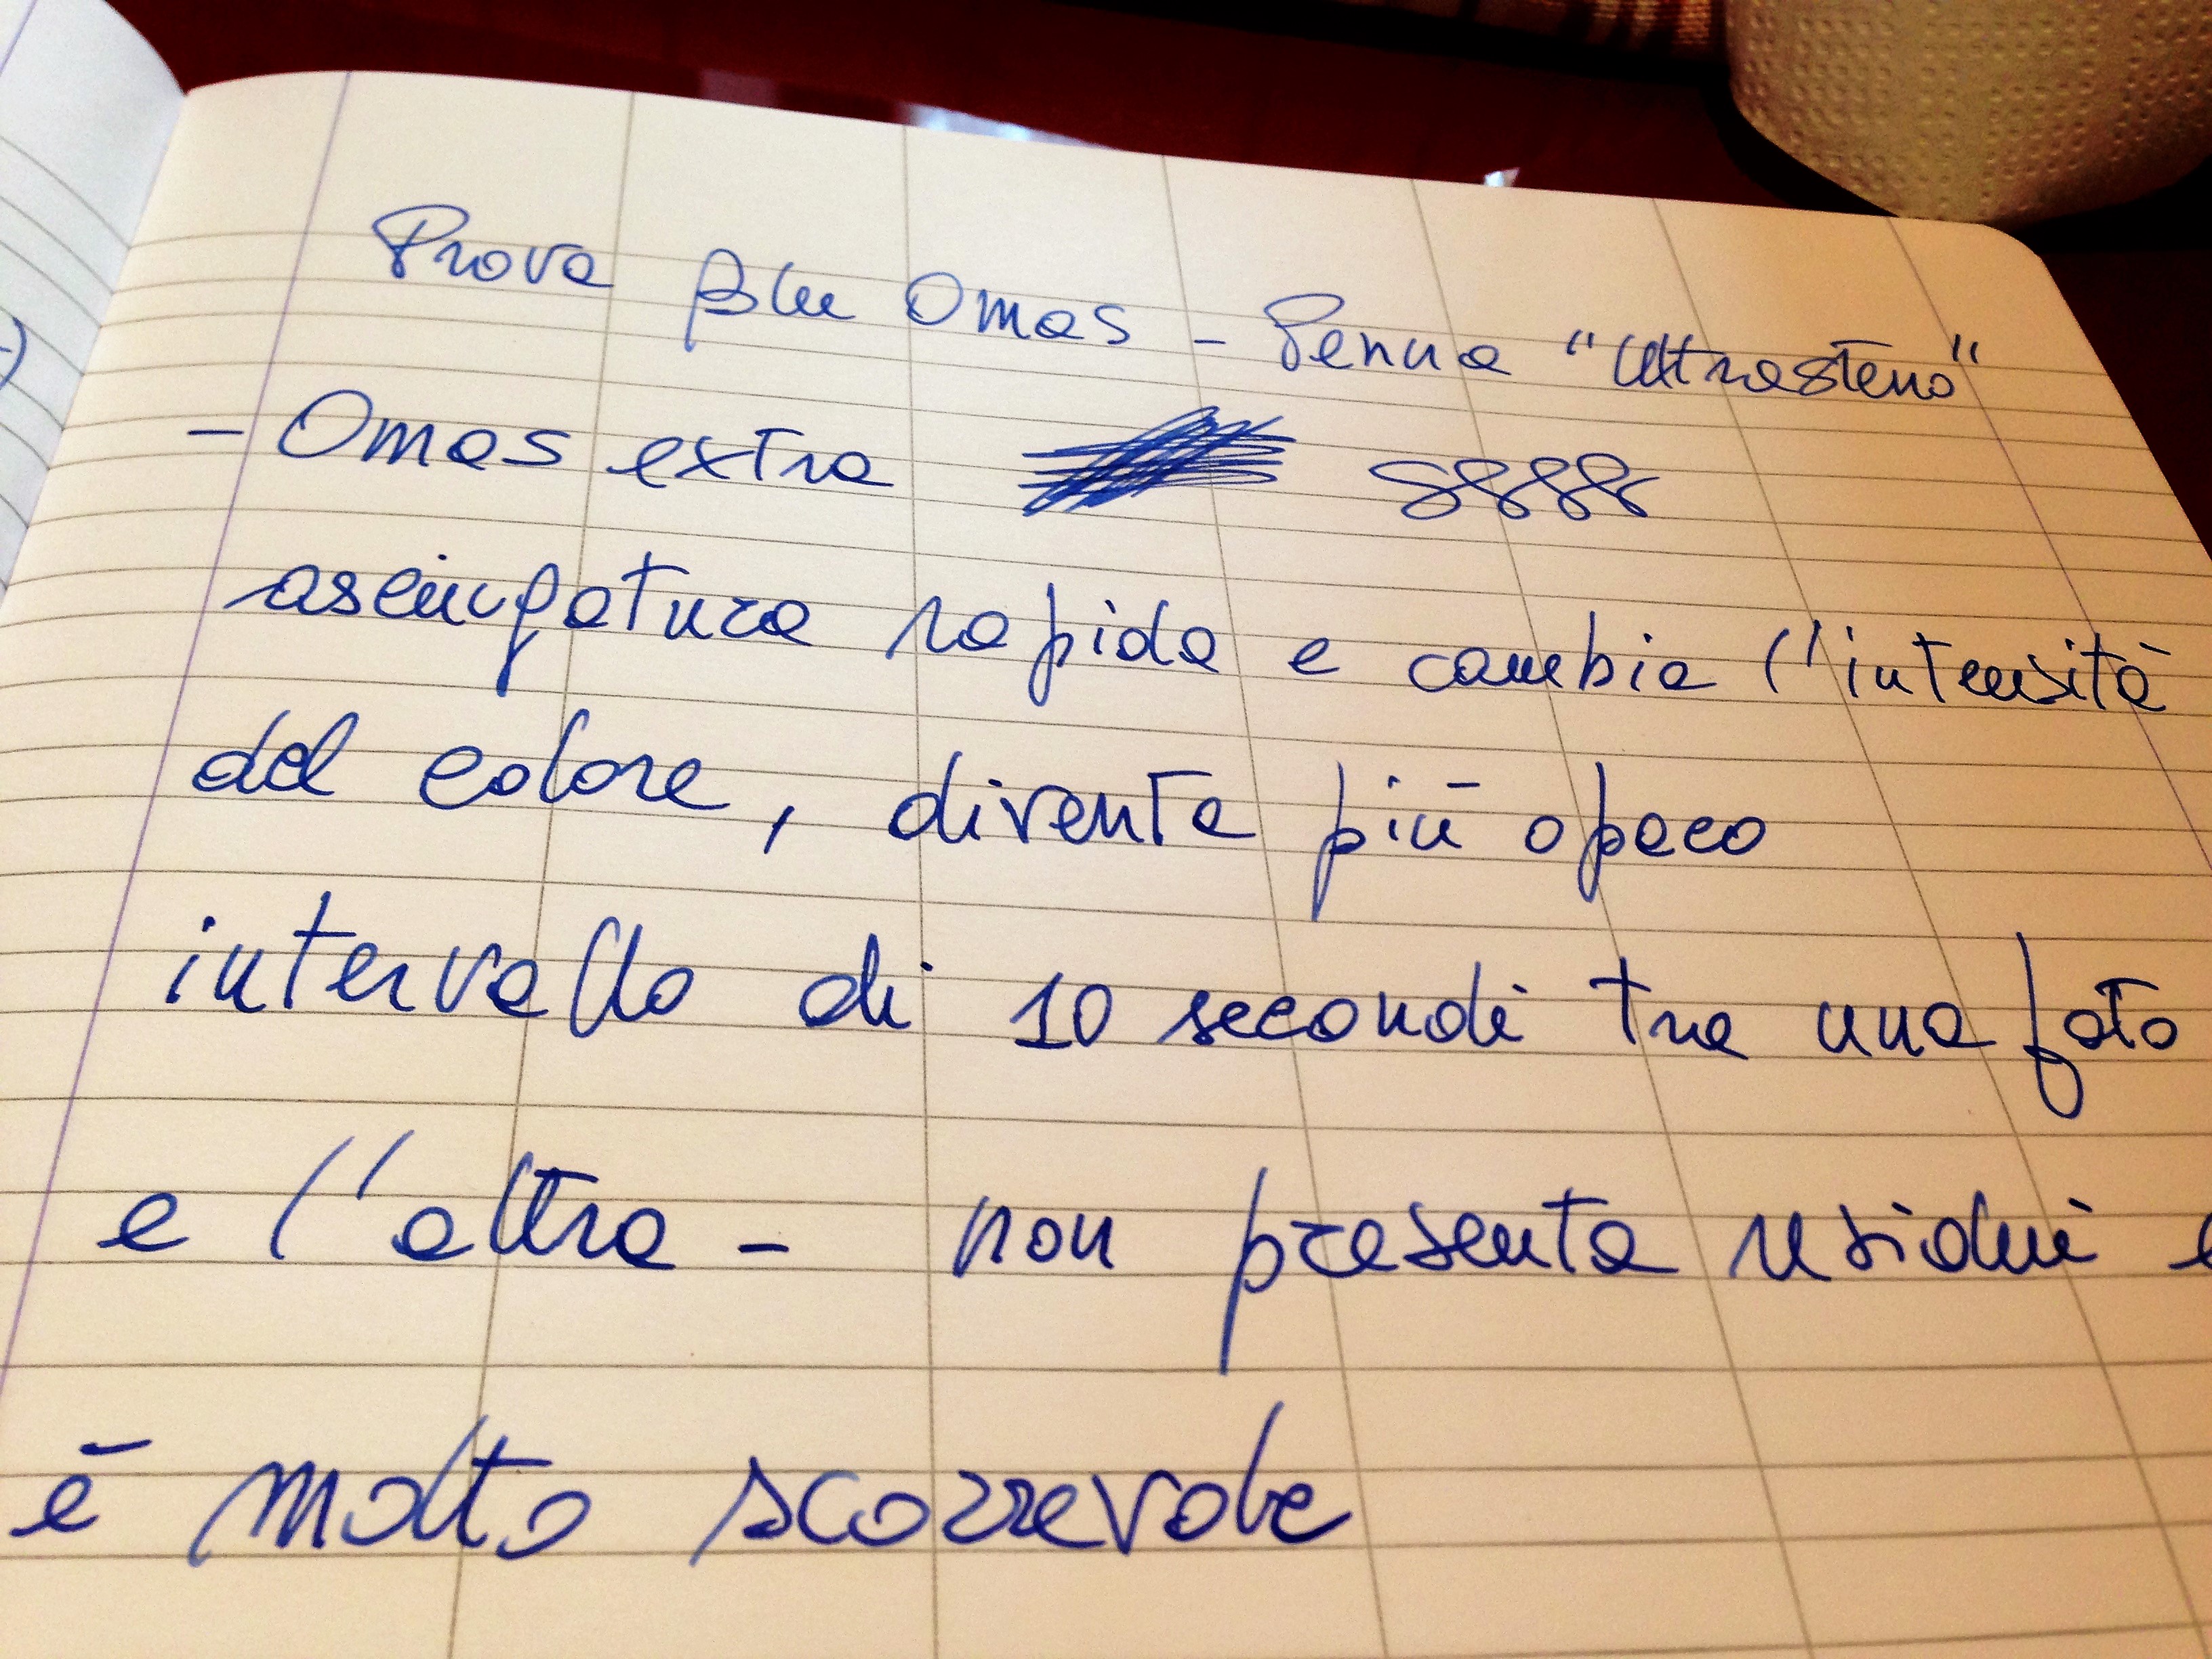 Prova Blu Omas - Penna "Ultrasteno"
- Omas extra
asciugatura rapida e cambia l'intensità
del colore, diventa più opaco
intervallo di 10 secondi tra una foto
e l'altra - non presenta residui e
è molto scorrevole